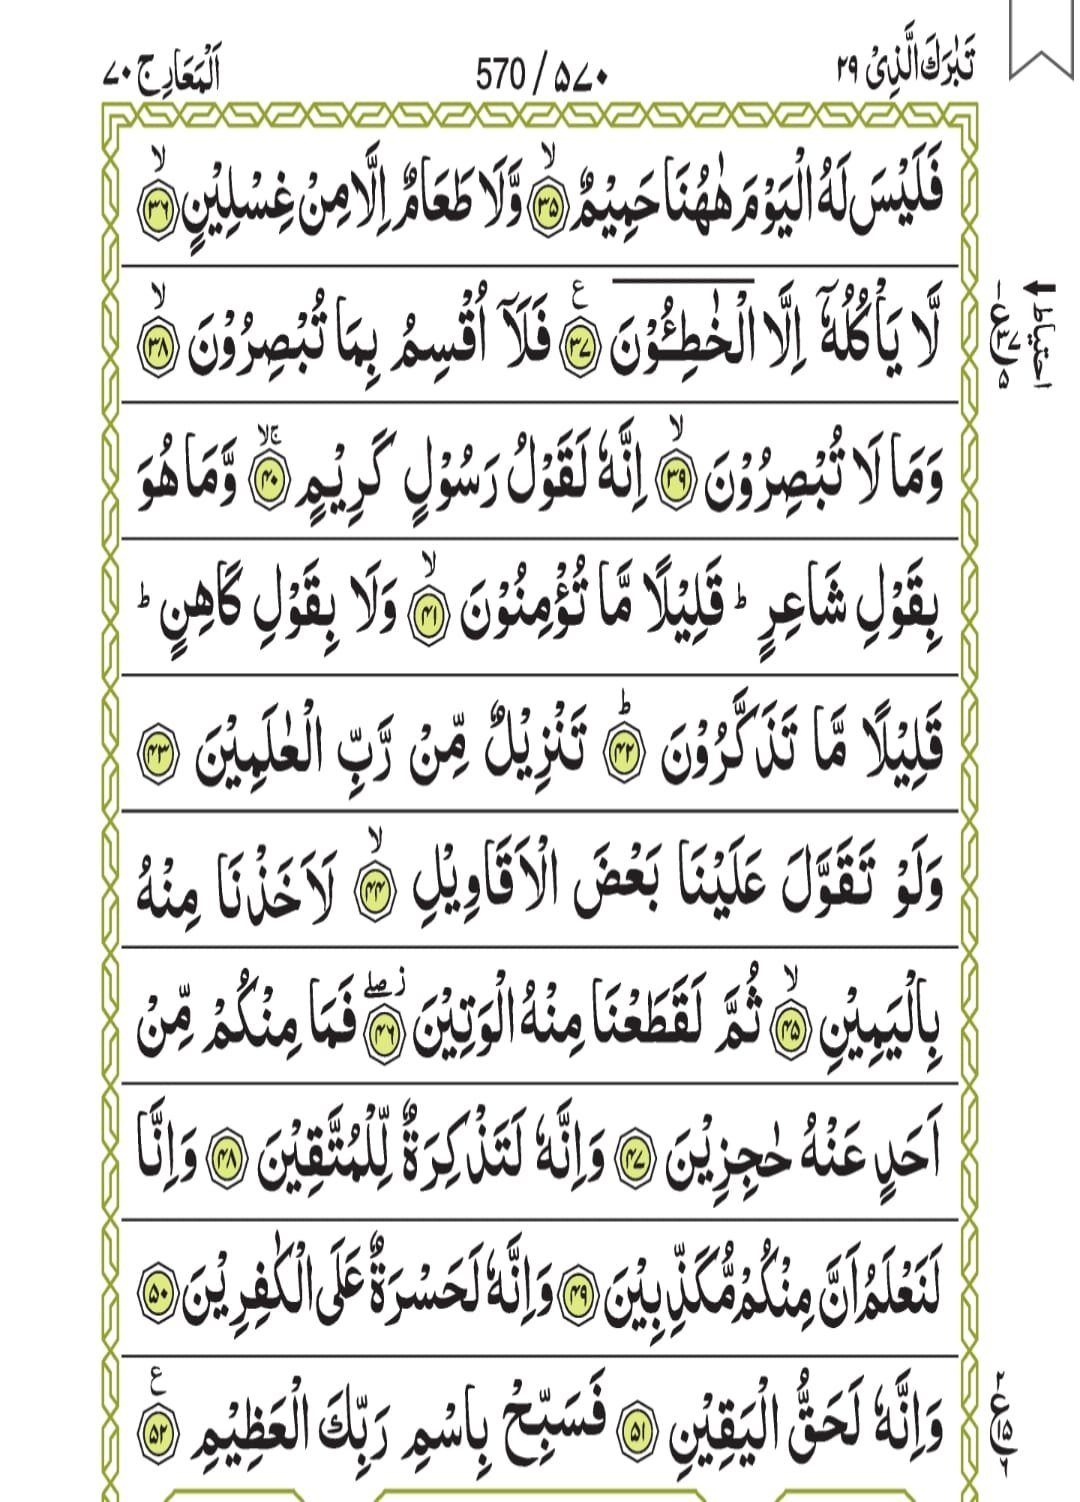 تَبٰرَكَ الَّذِیْ ۲۹
570 / ۵۷۰
اَلْمَعَارِج ۷۰
فَلَیْسَ لَهُ الْیَوْمَ هٰهُنَا حَمِیْمٌ ۙ﴿۳۵﴾ وَّلَا طَعَامٌ اِلَّا مِنْ غِسْلِیْنٍ ۙ﴿۳۶﴾
لَّا یَاْكُلُهٗۤ اِلَّا الْخٰطِـُٔوْنَ ﴿۳۷﴾ ع فَلَاۤ اُقْسِمُ بِمَا تُبْصِرُوْنَ ۙ﴿۳۸﴾
وَمَا لَا تُبْصِرُوْنَ ۙ﴿۳۹﴾ اِنَّهٗ لَقَوْلُ رَسُوْلٍ كَرِیْمٍ ۚۙ﴿۴۰﴾ وَّمَا هُوَ
بِقَوْلِ شَاعِرٍ ؕ قَلِیْلًا مَّا تُؤْمِنُوْنَ ۙ﴿۴۱﴾ وَلَا بِقَوْلِ كَاهِنٍ ؕ
قَلِیْلًا مَّا تَذَكَّرُوْنَ ؕ﴿۴۲﴾ تَنْزِیْلٌ مِّنْ رَّبِّ الْعٰلَمِیْنَ ﴿۴۳﴾
وَلَوْ تَقَوَّلَ عَلَیْنَا بَعْضَ الْاَقَاوِیْلِ ۙ﴿۴۴﴾ لَاَخَذْنَا مِنْهُ
بِالْیَمِیْنِ ۙ﴿۴۵﴾ ثُمَّ لَقَطَعْنَا مِنْهُ الْوَتِیْنَ ؗۖ﴿۴۶﴾ فَمَا مِنْكُمْ مِّنْ
اَحَدٍ عَنْهُ حٰجِزِیْنَ ﴿۴۷﴾ وَاِنَّهٗ لَتَذْكِرَةٌ لِّلْمُتَّقِیْنَ ﴿۴۸﴾ وَاِنَّا
لَنَعْلَمُ اَنَّ مِنْكُمْ مُّكَذِّبِیْنَ ﴿۴۹﴾ وَاِنَّهٗ لَحَسْرَةٌ عَلَی الْكٰفِرِیْنَ ﴿۵۰﴾
وَاِنَّهٗ لَحَقُّ الْیَقِیْنِ ﴿۵۱﴾ فَسَبِّحْ بِاسْمِ رَبِّكَ الْعَظِیْمِ ﴿۵۲﴾ ع
احتیاط
۱ ع ۳۷ ۵
۲ ع ۱۵ ۶